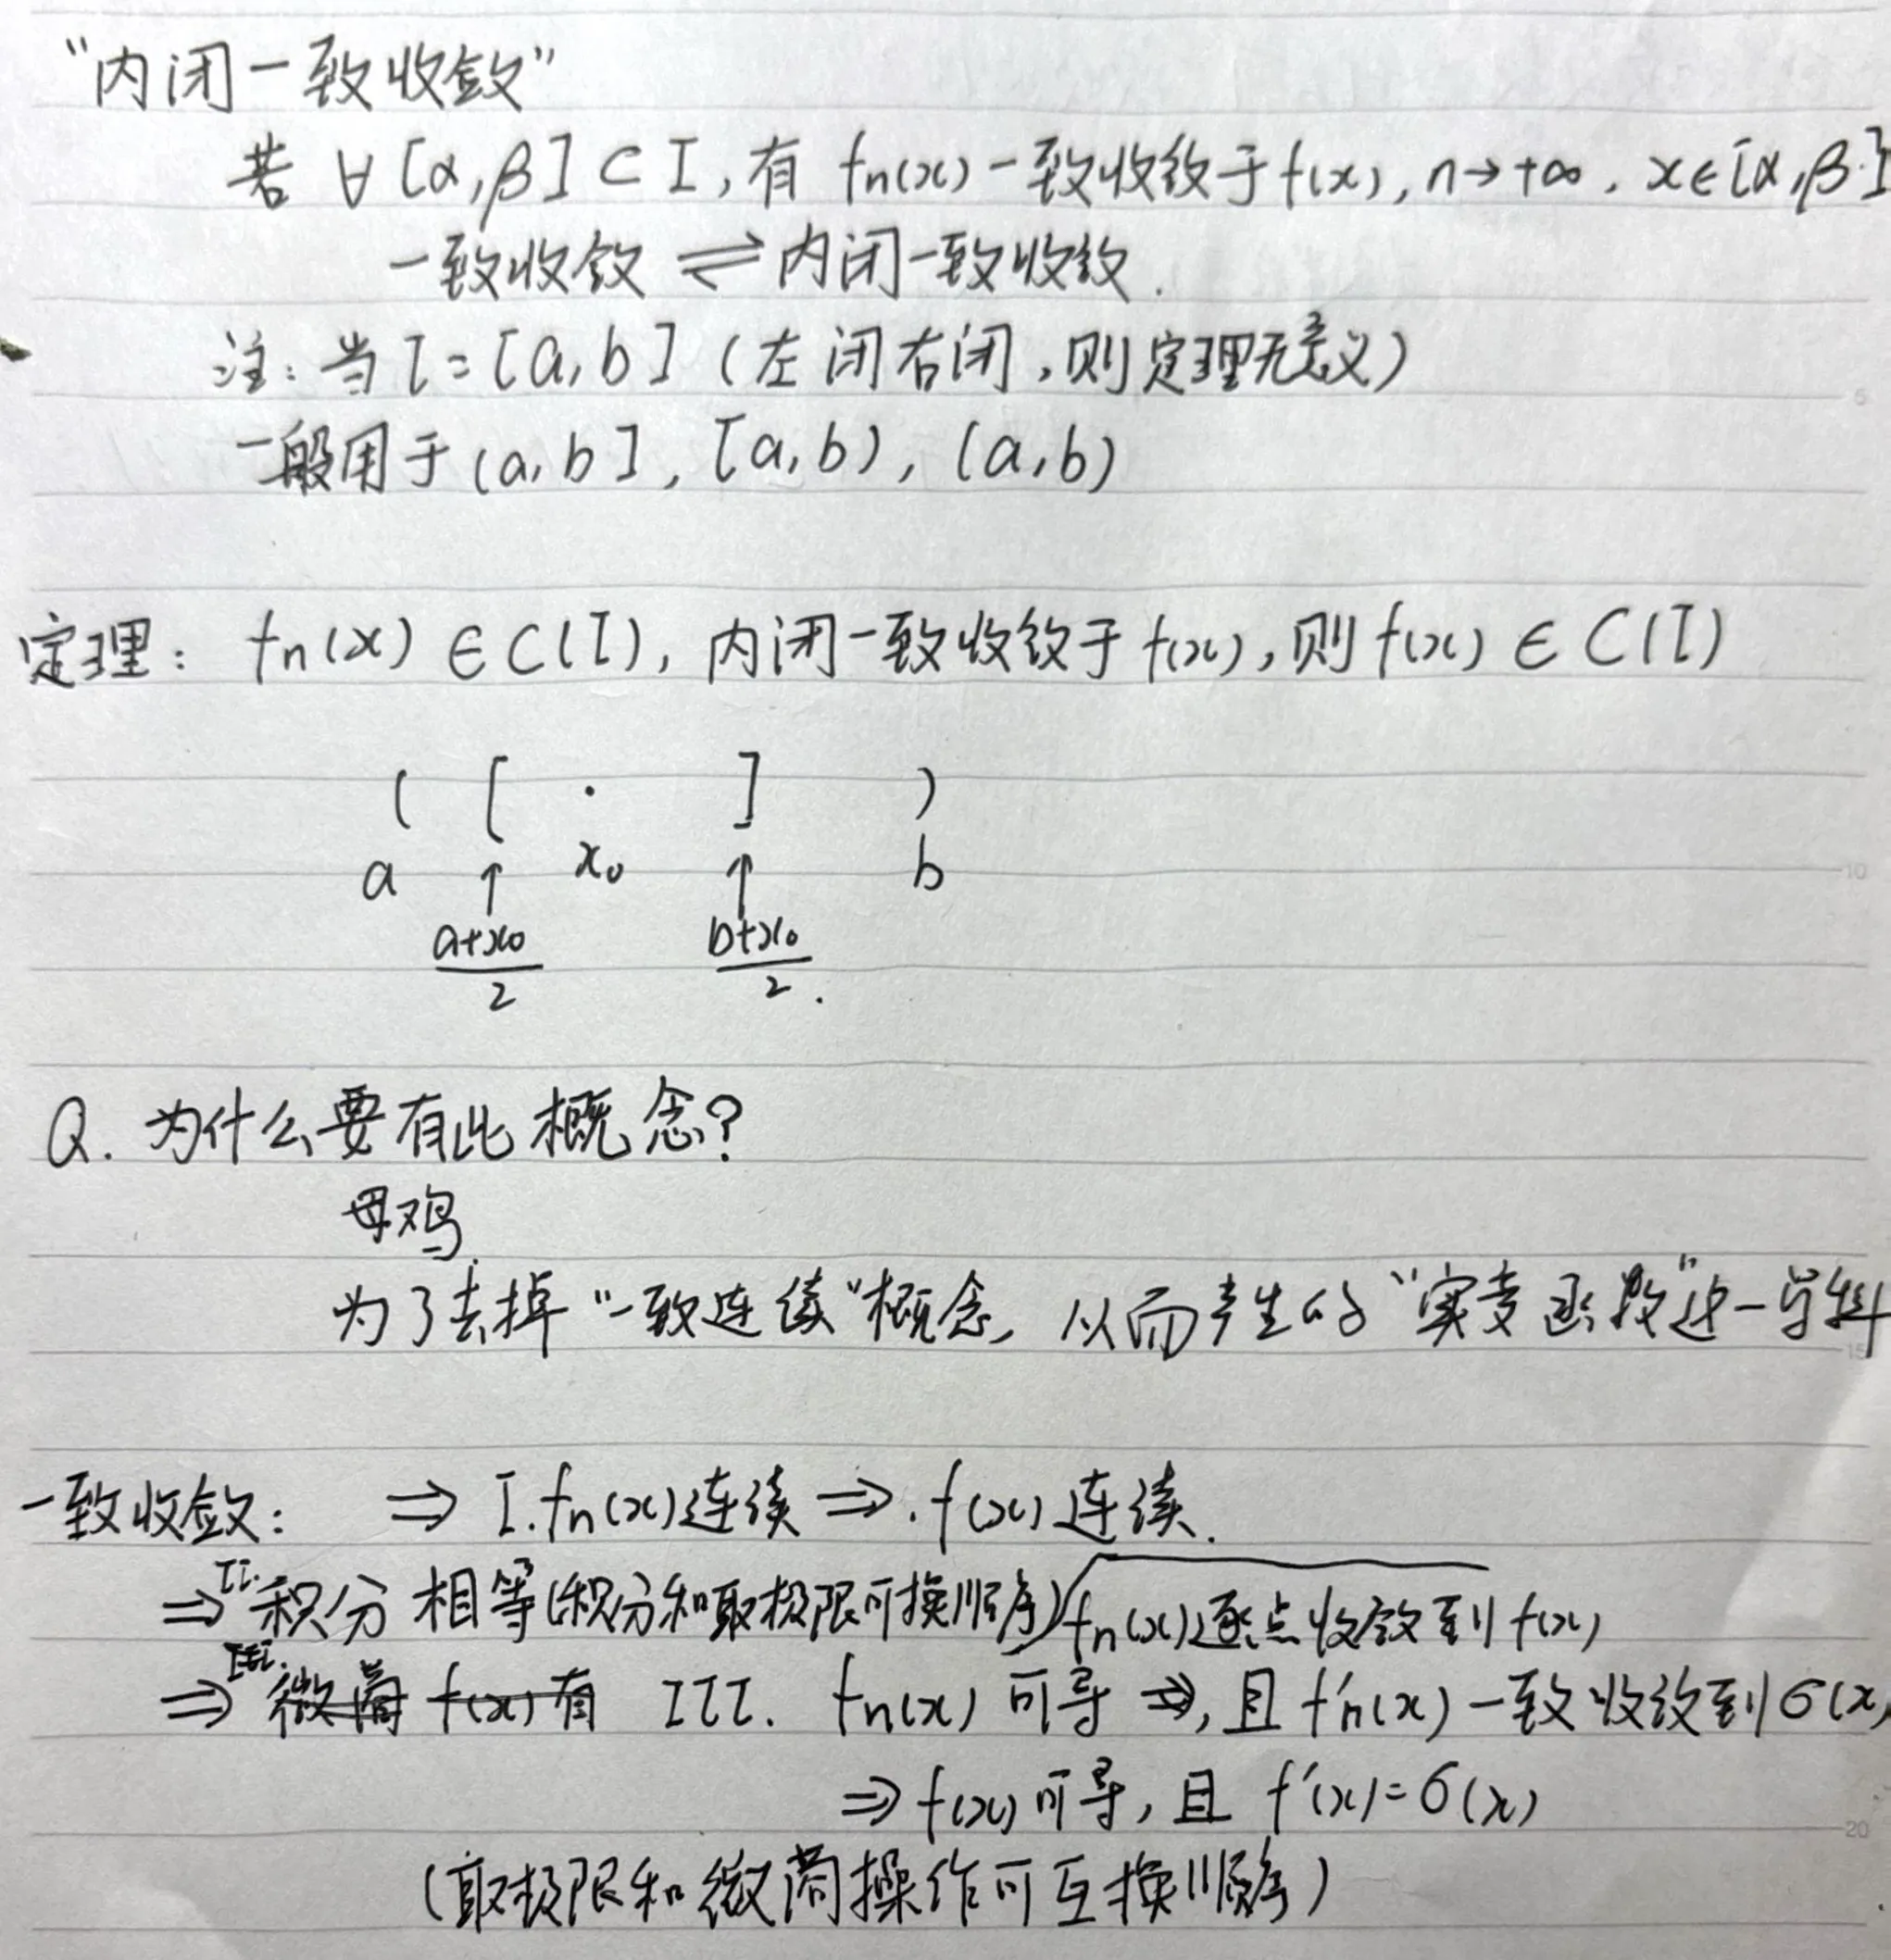 “内闭一致收敛”
若 ∀ [α,β] ⊂ I, 有 fn(x) 一致收敛于 f(x), n→+∞, x∈[α,β]
一致收敛 ⇌ 内闭一致收敛.
注: 当 I=[a,b] (左闭右闭,则定理无意义)
一般用于 (a,b], [a,b), (a,b)
定理: fn(x) ∈ C(I), 内闭一致收敛于 f(x), 则 f(x) ∈ C(I)
( [ · ] )
a ↑ x₀ ↑ b
(a+x₀)/2 (b+x₀)/2.
Q. 为什么要有此概念?
母鸡.
为了去掉“一致连续”概念, 从而产生的“实变函数”这一学科
一致收敛: ⇒ I. fn(x)连续 ⇒ f(x)连续.
⇒ II. 积分相等(积分和取极限可换顺序) fn(x)逐点收敛到 f(x)
⇒ III. 微商 f(x)有 III. fn(x) 可导 ⇒, 且 f'n(x) 一致收敛到 σ(x)
⇒ f(x) 可导, 且 f'(x)=σ(x)
(取极限和微商操作可互换顺序)